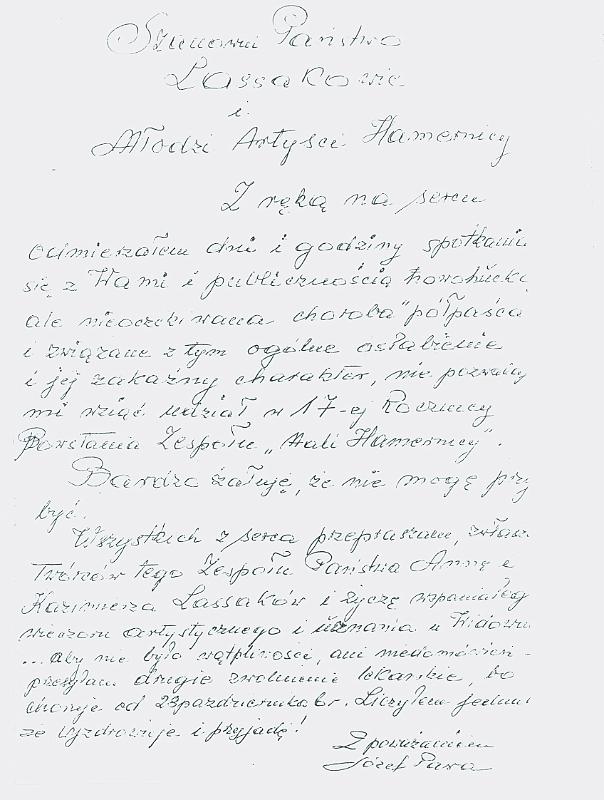 Szanowni Państwo
Lassakowie
i
Młodzi Artyści Hamernicy
Z ręką na sercu
odmierzałem dni i godziny spotkania
się z Wami i publicznością nowohucką
ale nieoczekiwana choroba "półpaśca
i związane z tym ogólne osłabienie
i jej zakaźny charakter, nie pozwalają
mi wziąć udział w 17-ej Rocznicy
Powstania Zespołu „Mali Hamernicy".
Bardzo żałuję, że nie mogę przy
być.
Wszystkich z serca przepraszam, zwłasz
Twórców tego Zespołu Państwa Annę i
Kazimierza Lassaków i życzę wspaniałego
wieczoru artystycznego i uznania u Widowni
... Aby nie było wątpliwości, ani niedomówień -
przesyłam drugie zwolnienie lekarskie, bo
choruję od 23 października br. Liczyłem jednak
że wyzdrowieję i przyjadę!
Z poważaniem
Józef